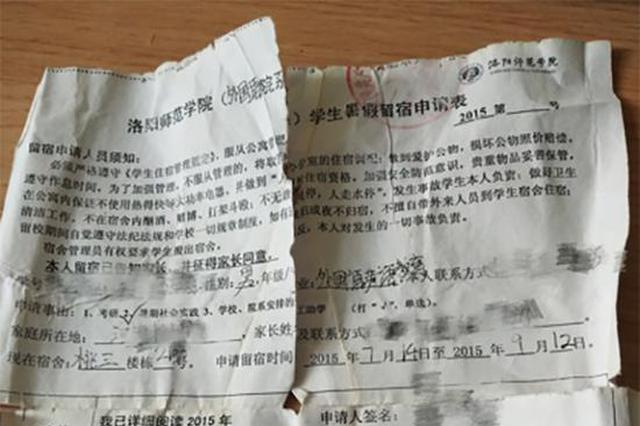 洛阳师范学院
洛阳师范学院（外国语学院系）学生暑假留宿申请表
2015 第 号
留宿申请人员须知：
必须严格遵守《学生住宿管理规定》，服从公寓管 室的住宿调配；做到爱护公物，损坏公物照价赔偿，
遵守作息时间，为了加强管理，不服从管理的，将取 住宿资格。加强安全防范意识，贵重物品妥善保管，
在公寓内保证不使用热得快等大功率电器，并做到“人 停，人走水停”，发生事故学生本人负责，做好卫生
清洁工作，不在宿舍内酗酒、赌博、打架斗殴；不无 或夜不归宿，不擅自带外来人员到学生宿舍住宿；
留校期间自觉遵守法纪法规和学校一切规章制度，如有 反，本人对发生的一切事故负责。
宿舍管理员有权要求学生搬出宿舍。
本人留宿已告知家长，并征得家长同意。
学号 性别：男 年级 业： 本人联系方式
申请事由：1、考研 2、暑期社会实践 3、学校、院系安排的 工助学 （打“√”，单选）。
家庭所在地： 家长姓 及联系方式
现在宿舍：桃三 楼栋 号。 申请留宿时间 2015 年 7 月 14 日至 2015 年 9 月 12 日。
我已详细阅读 2015 年 申请人签名：